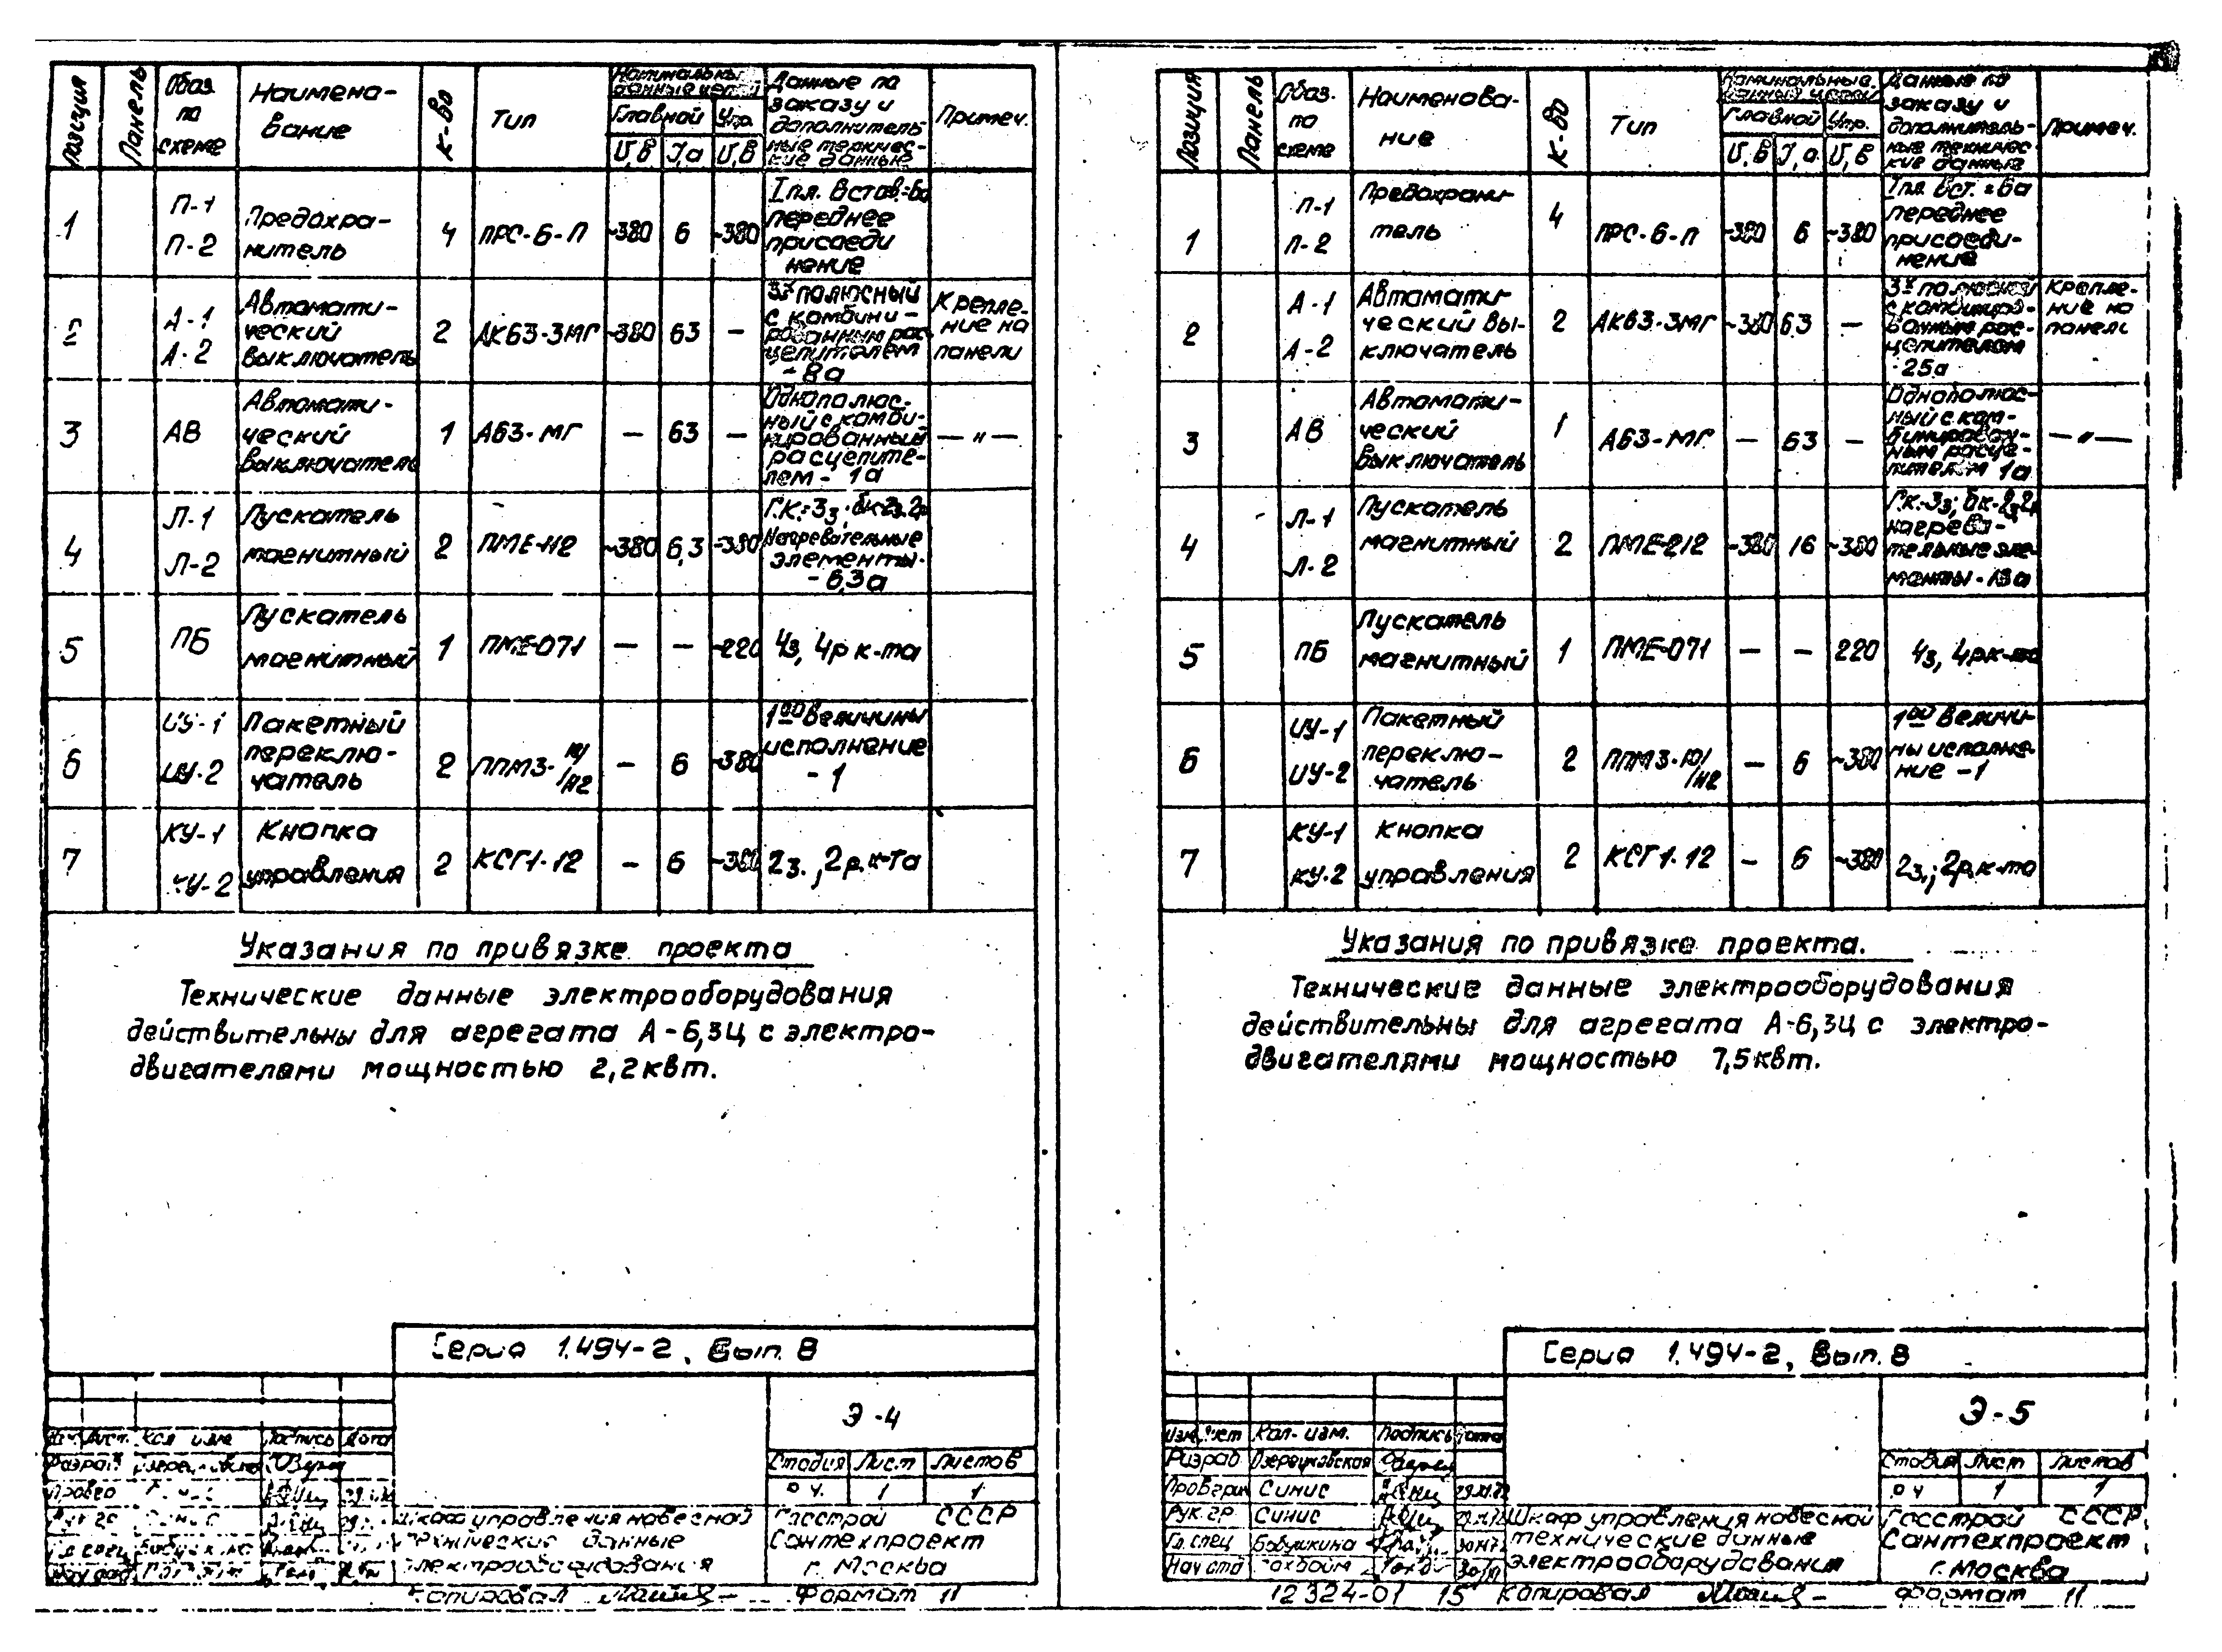 Позиция
Панель
Обоз. по схеме
Наименование
К-во
Тип
Номинальные данные цепей
Главной
Упр.
U,В
I,а
U,В
Данные по заказу и дополнительные технические данные
Примеч.
1
П-1
П-2
Предохра-
нитель
4
ПРС-6-П
~380
6
~380
Iпл. встав.=6а
переднее
присоеди
нение
2
А-1
А-2
Автомати-
ческий
выключатель
2
АК63-3МГ
~380
63
—
3х полюсный
с комбини-
рованным рас-
цепителем
- 8а
Крепле-
ние на
панели
3
АВ
Автомати-
ческий
выключатель
1
А63-МГ
—
63
—
Однополюс-
ный с комби-
нированный
расцепите-
лем - 1а
— " —
4
Л-1
Л-2
Пускатель
магнитный
2
ПМЕ-112
~380
6,3
~380
Г.К.-3з; бк-2з.2р
Нагревательные
элементы.
- 6,3а
5
ПБ
Пускатель
магнитный
1
ПМЕ-071
—
—
~220
4з, 4р к-та
6
ИУ-1
ИУ-2
Пакетный
переклю-
чатель
2
ППМ3-10/
/Н2
—
6
~380
1ой величины
исполнение
- 1
7
КУ-1
КУ-2
Кнопка
управления
2
КСГ1-12
—
6
~380
2з., 2р.к-та
Указания по привязке проекта
Технические данные электрооборудования
действительны для агрегата А-6,3Ц с электро-
двигателями мощностью 2,2квт.
Серия 1.494-2, Вып. 8
Э-4
Лист.
Кол изм
Подпись
Дата
Стадия
Лист
Листов
Р.Ч.
1
1
Шкаф управления навесной
технические данные
электрооборудования
Госстрой СССР
Сантехпроект
г. Москва
Копировал
Формат 11
Позиция
Панель
Обоз. по схеме
Наименова-
ние
К-во
Тип
Номинальные данные цепей
Главной
Упр.
U,В
I,а
U,В
Данные по
заказу и
дополнитель-
ные техничес
кие данные
Примеч.
1
П-1
П-2
Предохрани-
тель
4
ПРС-6-П
~380
6
~380
Iпл. вст.=6а
переднее
присоеди-
нение
2
А-1
А-2
Автомати-
ческий вы-
ключатель
2
АК63-3МГ
~380
63
—
3х полюсный
с комбиниро-
ванным рас-
цепителем
-25а
Крепле-
ние на
панели
3
АВ
Автомати-
ческий
выключатель
1
А63-МГ
—
63
—
Однополюс-
ный с ком-
бинирован-
ным расце-
пителем 1а
— " —
4
Л-1
Л-2
Пускатель
магнитный
2
ПМЕ-212
~380
16
~380
Г.К.-3з; бк-2з2р
нагрева-
тельные эле-
менты-
5
ПБ
Пускатель
магнитный
1
ПМЕ-071
—
—
220
4з, 4рк-та
6
ИУ-1
ИУ-2
Пакетный
переклю-
чатель
2
ППМ3-10/
/Н2
—
6
~380
1ой величи-
ны исполне-
ние -1
7
КУ-1
КУ-2
Кнопка
управления
2
КСГ1-12
—
6
~380
2з.; 2р.к-та
Указания по привязке проекта.
Технические данные электрооборудования
действительны для агрегата А-6,3Ц с электро-
двигателями мощностью 7,5квт.
Серия 1.494-2, Вып. 8
Э-5
Изм.
Лист
Кол. изм.
Подпись
Дата
Разраб
Проверил Синис
Рук.гр. Синис
Гл.спец Бабушкина
Нач отд
Стадия
Лист
Листов
Р Ч
1
1
Шкаф управления навесной
технические данные
электрооборудования
Госстрой СССР
Сантехпроект
г. Москва
12324-01 15 Копировал
Формат 11